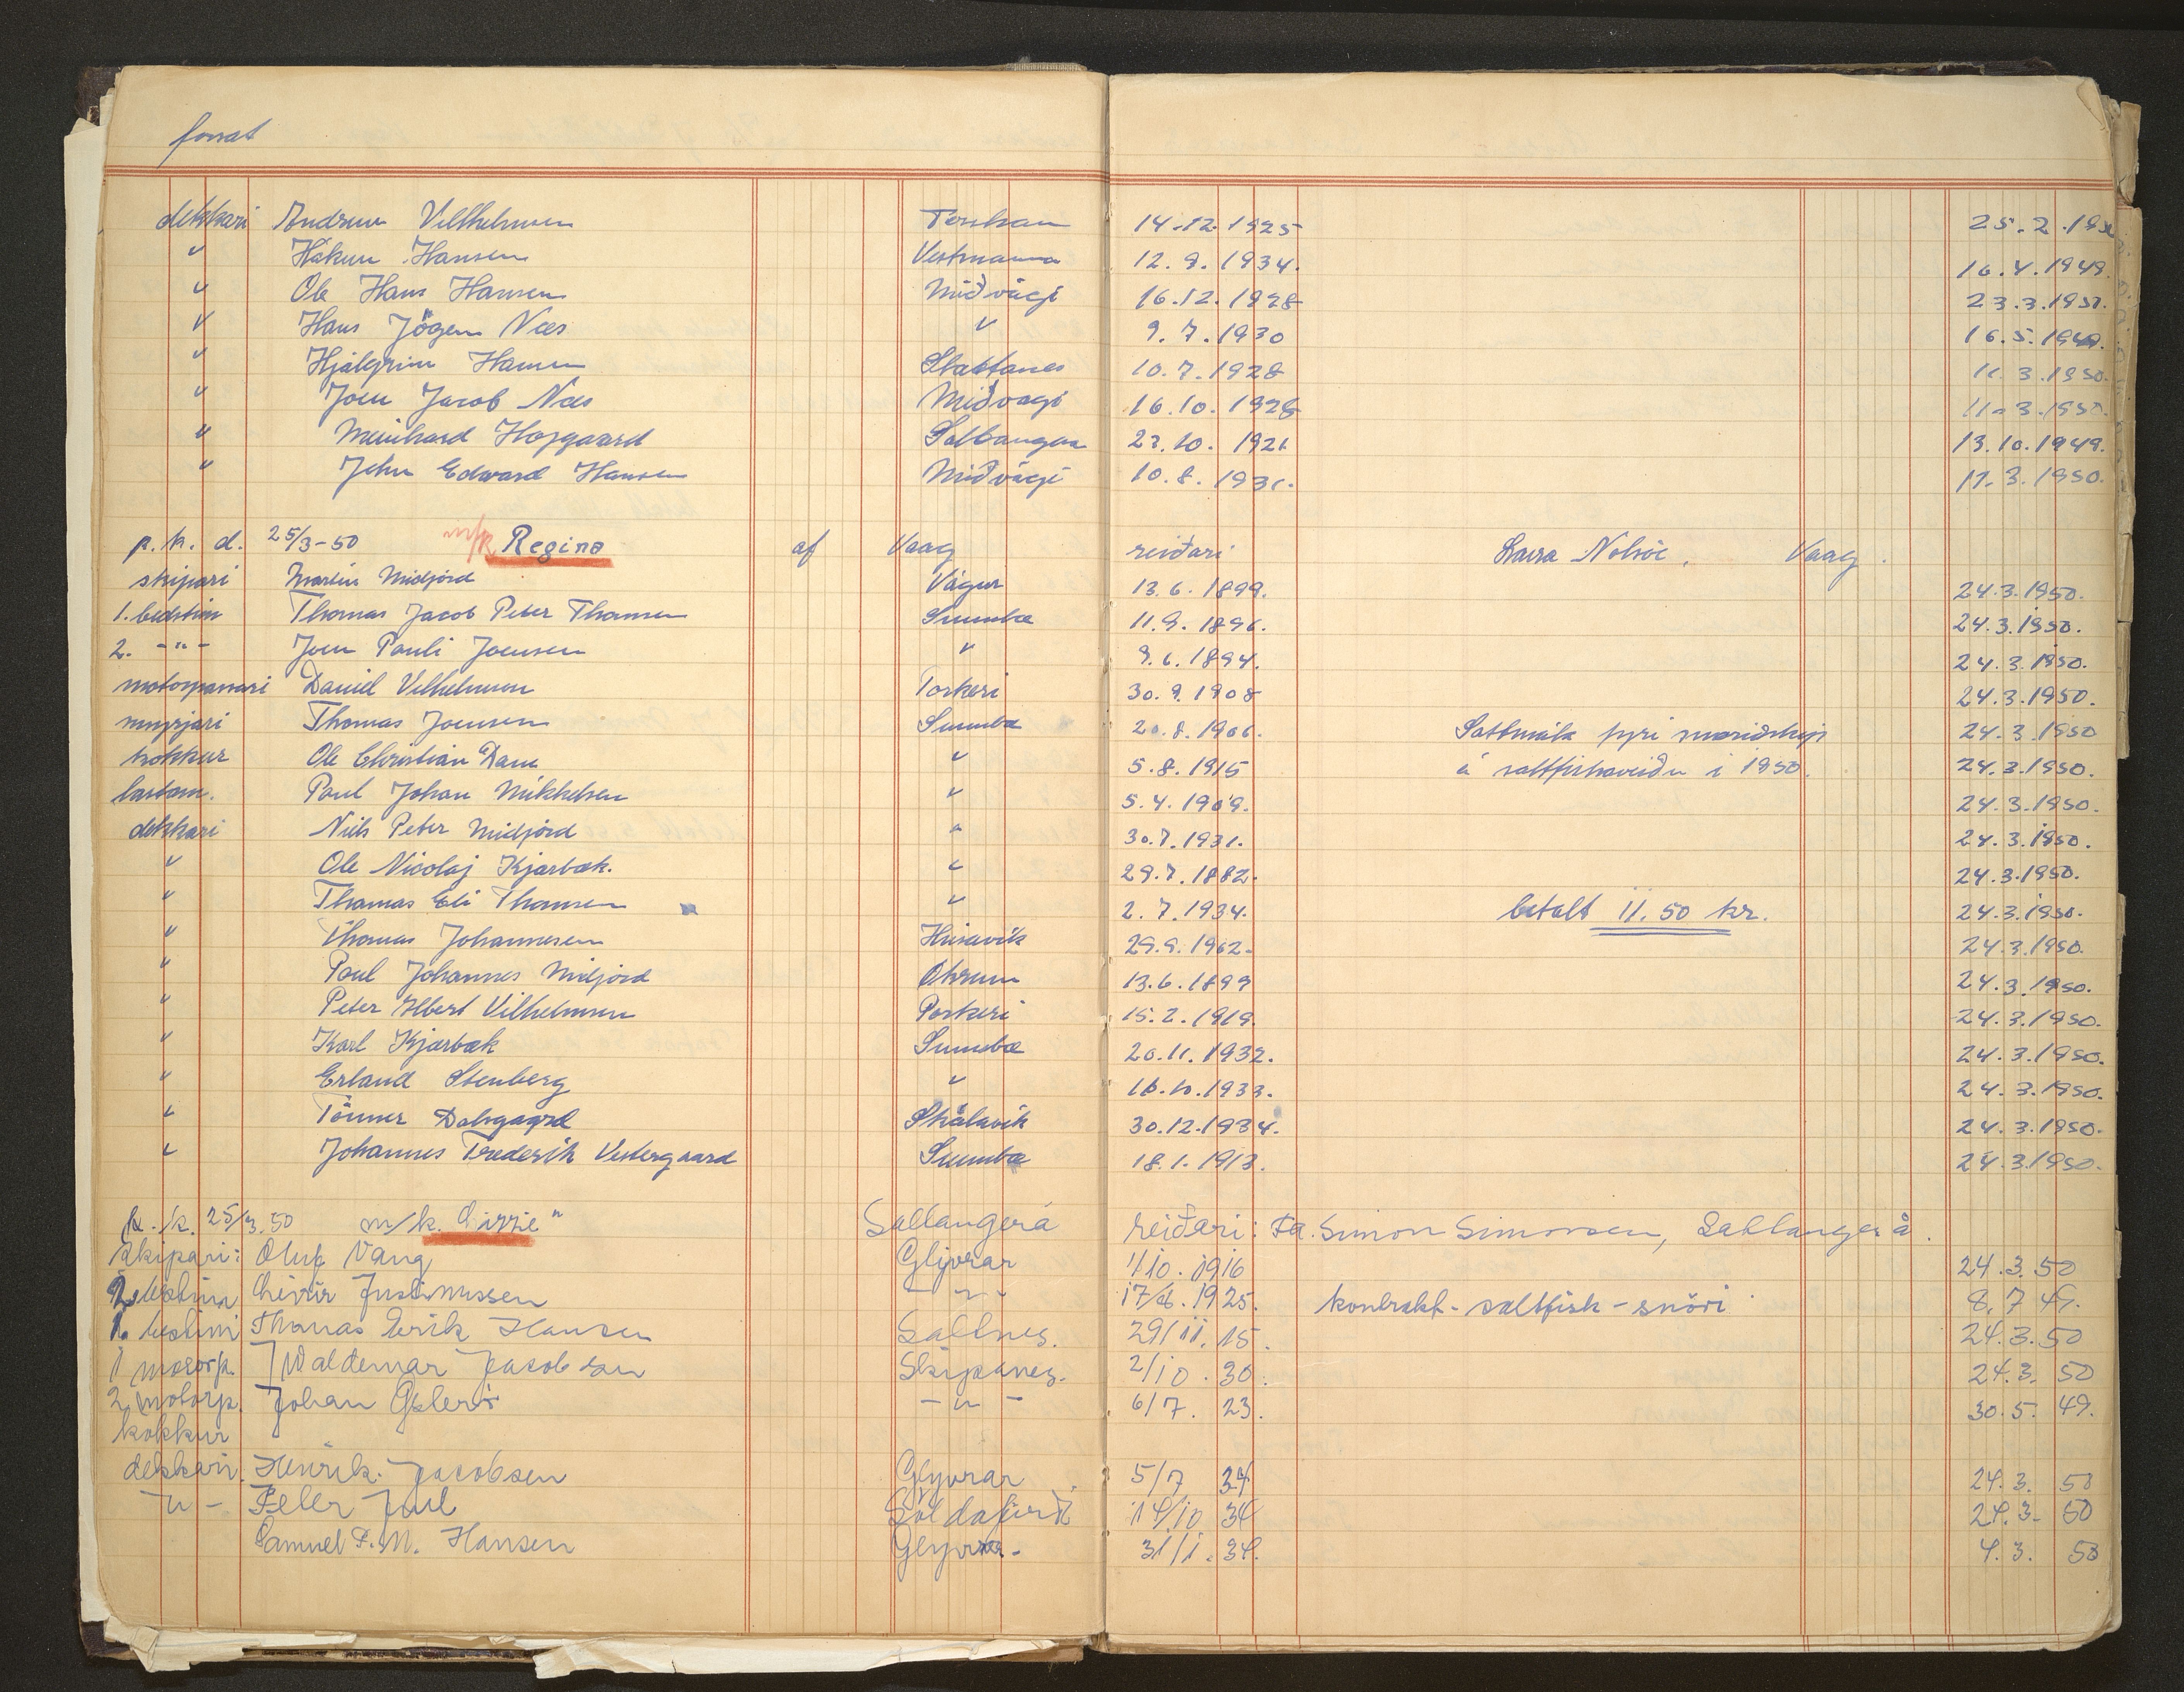 forsat
dekkari Andrew Vilhelmsen 14.12.1925 25.2.1950
" Hákun Hansen Vestmanna 12.9.1934. 16.4.1949.
" Ole Hans Hansen Miðvági 16.12.1928 23.3.1950.
" Hans Jögen Næs " 9.7.1930 16.5.1949.
" Hjálgrim Hansen 10.7.1928 11.3.1950.
" Joen Jacob Næs Miðvági 16.10.1928 11.3.1950.
" Meinhard Højgaard Saltangará 10. 1921 13.10.1949.
" John Edward Hansen Miðvági 10.8.1931. 17.3.1950.
p.k. d. 25/3-50 m/k Regina af Vaag reiðari Nolsöe, Vaag.
skipari Martin Midjord Vágur 13.6.1899. 24.3.1950.
1. bedstim Thomas Jacob Peter Thomsen Sumbø 11.9.1896. 24.3.1950.
2. -"- Joen Pauli Joensen " 9.6.1894. 24.3.1950.
motorpassari Daniel Vilhelmsen Porkeri 30.9.1908 24.3.1950.
Thomas Joensen Sumbø 20.8.1906. Sáttmála fyri snøriðskip 24.3.1950
kokkur Ole Christian Dam " 5.8.1915 á saltfiskaveiðu i 1950. 24.3.1950.
lastam. Poul Johan Mikkelsen " 5.4.1909. 24.3.1950.
dekkari Niels Peter Midjord " 30.7.1931. 24.3.1950.
" Ole Nicolaj Kjærbæk. " 29.7.1882. 24.3.1950.
" Thomas Eli Thomsen " 2.7.1934. betalt 11.50 kr. 24.3.1950.
" Thomas Johannesen Húsavík 29.9.1902. 24.3.1950.
" Poul Johannes Midjord Akrum 13.6.1899 24.3.1950.
" Peter Albert Vilhelmsen Porkeri 15.2.1919. 24.3.1950.
" Karl Kjærbæk Sumbø 20.11.1932. 24.3.1950.
" Erland Stenberg " 16.10.1933. 24.3.1950.
" Tönner Dalsgaard Skálavík 30.12.1934. 24.3.1950.
" Johannes Frederik Vestergaard Sumbø 18.1.1913. 24.3.1950.
p.k. 25/3.50 m/k. Lizzie" Saltangerá reiðari: Fa. Simon Simonsen, Saltangerá.
skipari: Oluf Vang Glyvrar 1/10.1916 24.3.50
2. bestim Justinussen -"- 17/6.1925. kontrakt - saltfisk - snöri 8.7 49.
1. bestim Thomas Eirik Hansen Saltnes. 29/11.15. 24.3.50
1 motorp. J Waldemar Jacobsen Skipanes. 2/10.30. 24.3. 50
2. motorp. Johan -"- 6/7. 23. 30.5. 49.
kokkur
dekkari Henrik Jacobsen Glyvrar 5/7 34 24.3. 50
-"- Peter Juul Söldafjørð 14/10 34 24.3. 50
Samuel F. M. Hansen Glyvrar. 31/1.34. 4.3. 50